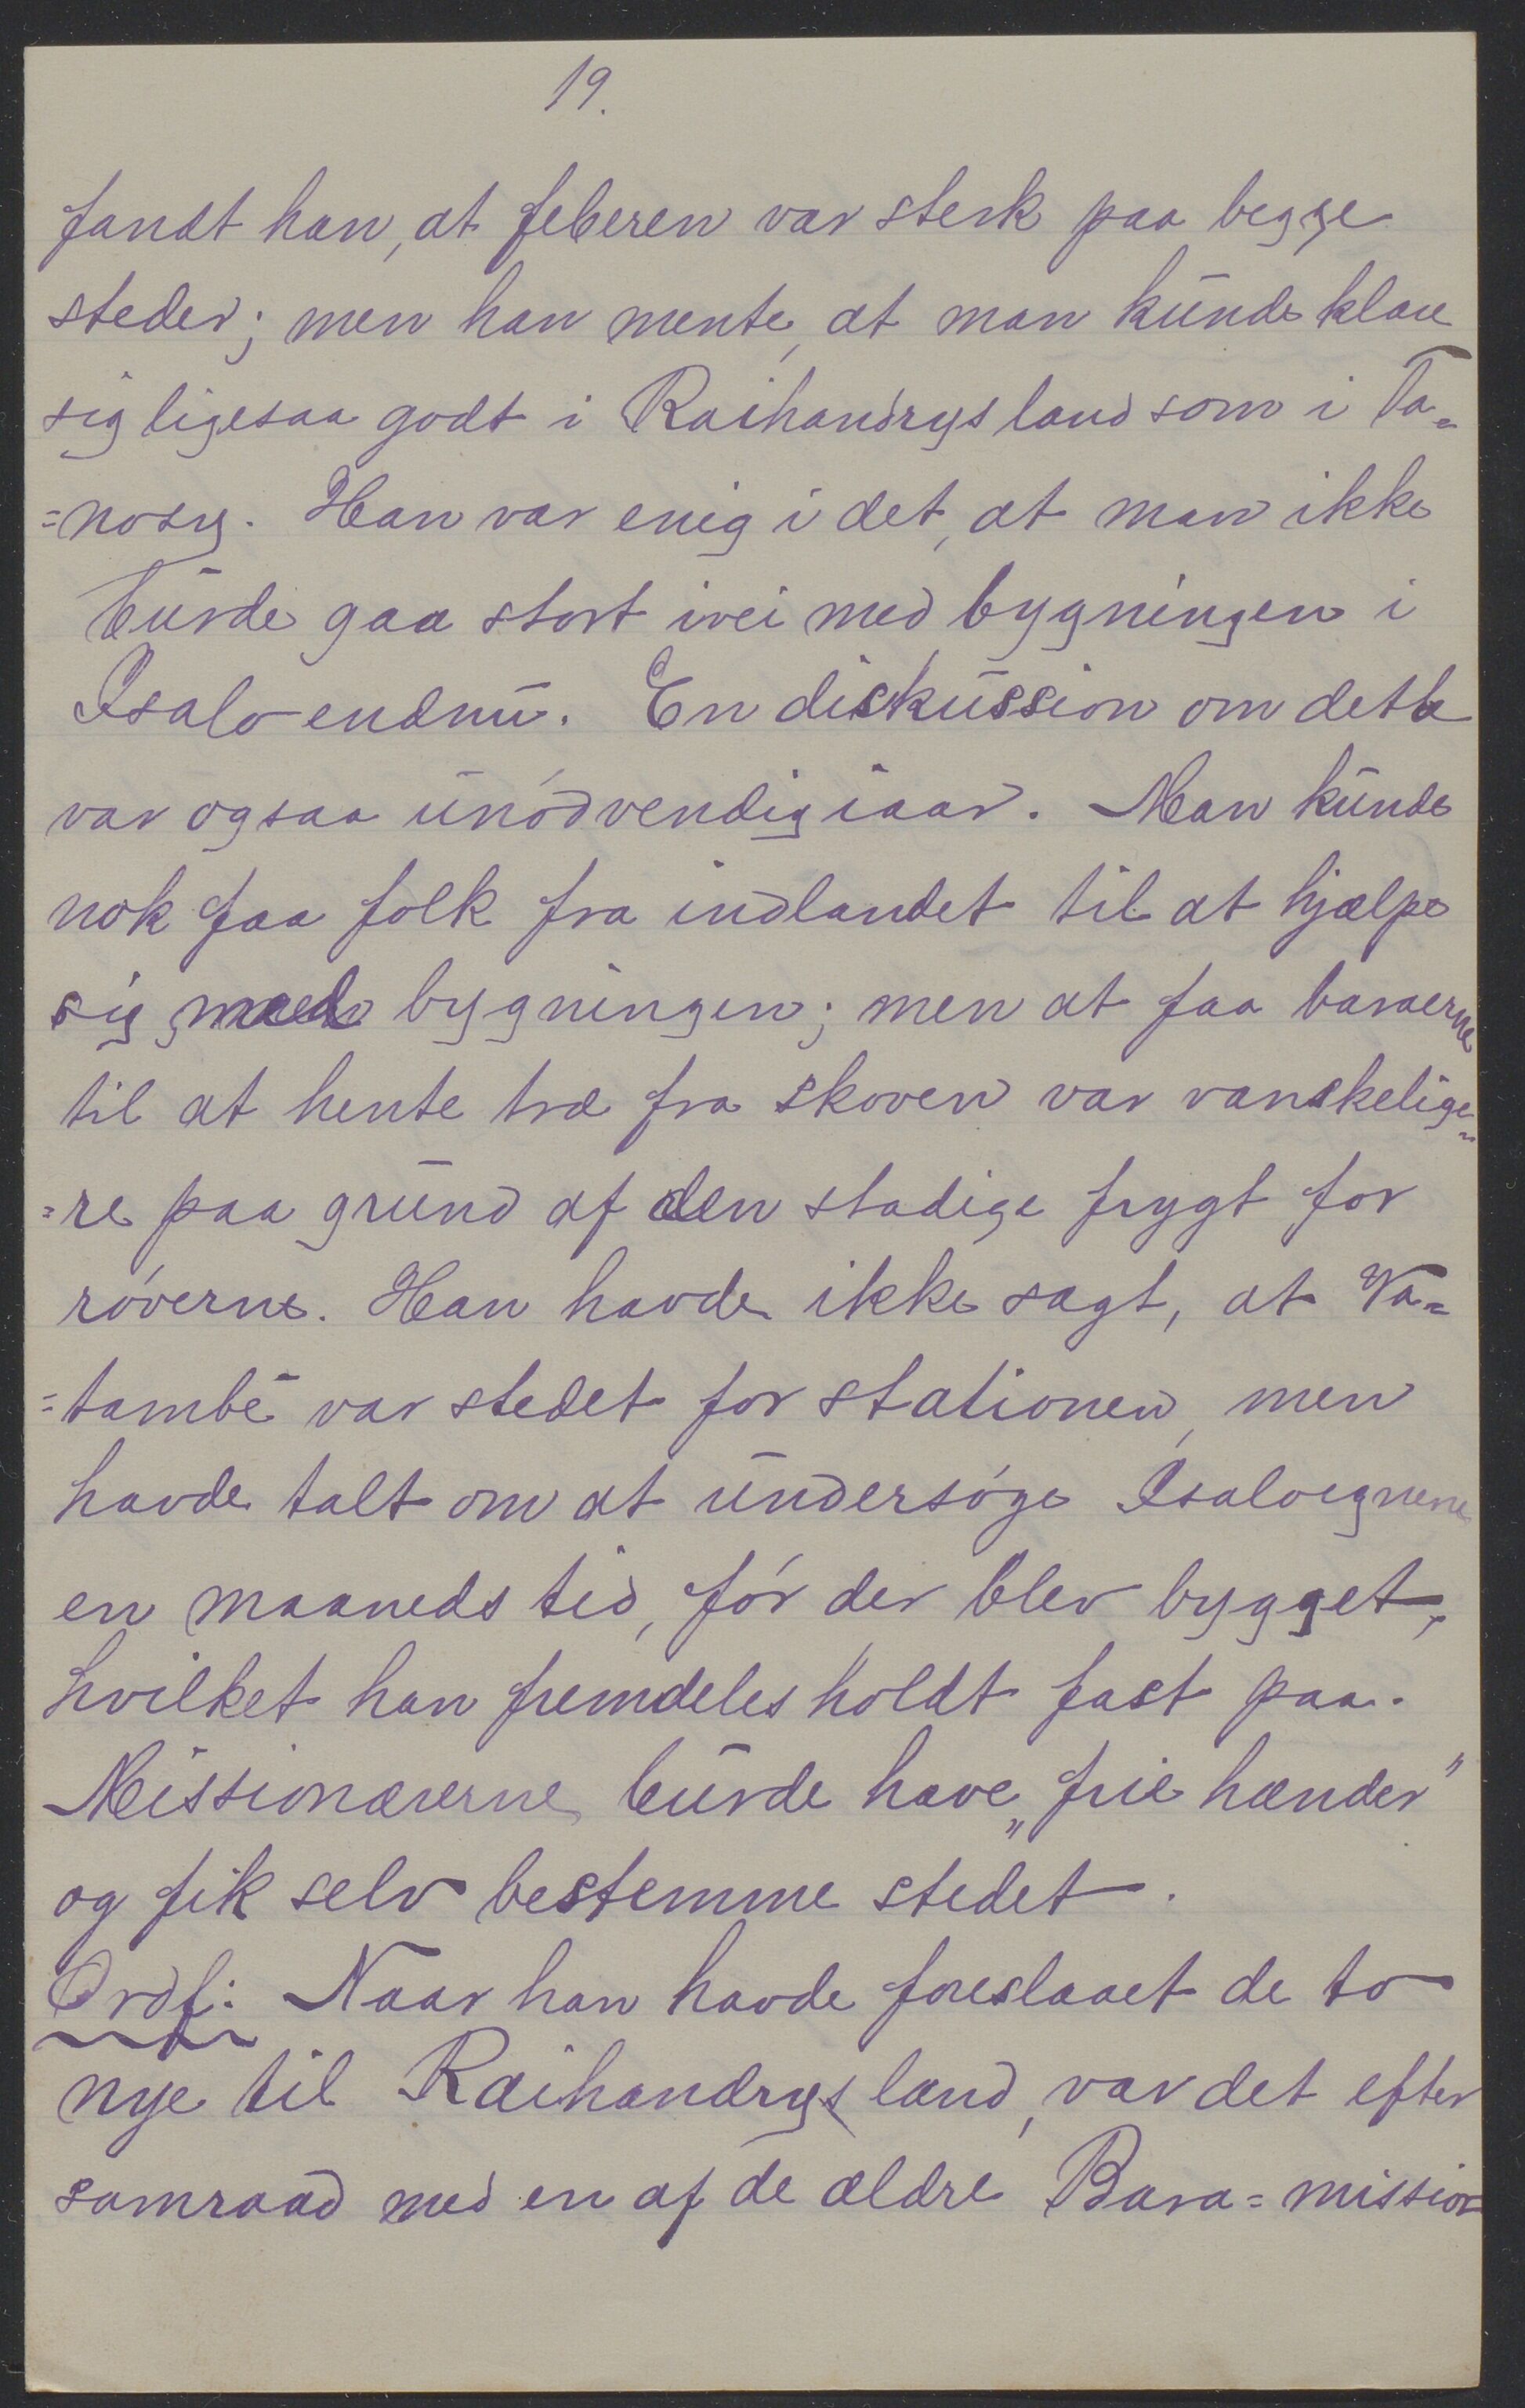 19.
fandt han, at feberen var sterk paa begge
steder; men han mente, at man kunde klare
sig ligesaa godt i Raihandrys land som i Ta=
=nosy. Han var enig i det, at man ikke
burde gaa stort ivei med bygningen i
Isalo endnu. En diskussion om dette
var ogsaa unödvendig iaar. Man kunde
nok faa folk fra indlandet til at hjælpe
sig med bygningen; men at faa baraerne
til at hente træ fra skoven var vanskelige=
=re paa grund af den stadige frygt for
röverne. Han havde ikke sagt, at Va=
=també var stedet for stationen, men
havde talt om at undersöge Isaloegnene
en maaneds tid, för der blev bygget,
hvilket han fremdeles holdt fast paa.
Missionærerne burde have „frie hænder"
og fik selv bestemme stedet.
Ordf: Naar han havde foreslaaet de to
nye til Raihandrys land, var det efter
samraad med en af de ældre Bara=mission